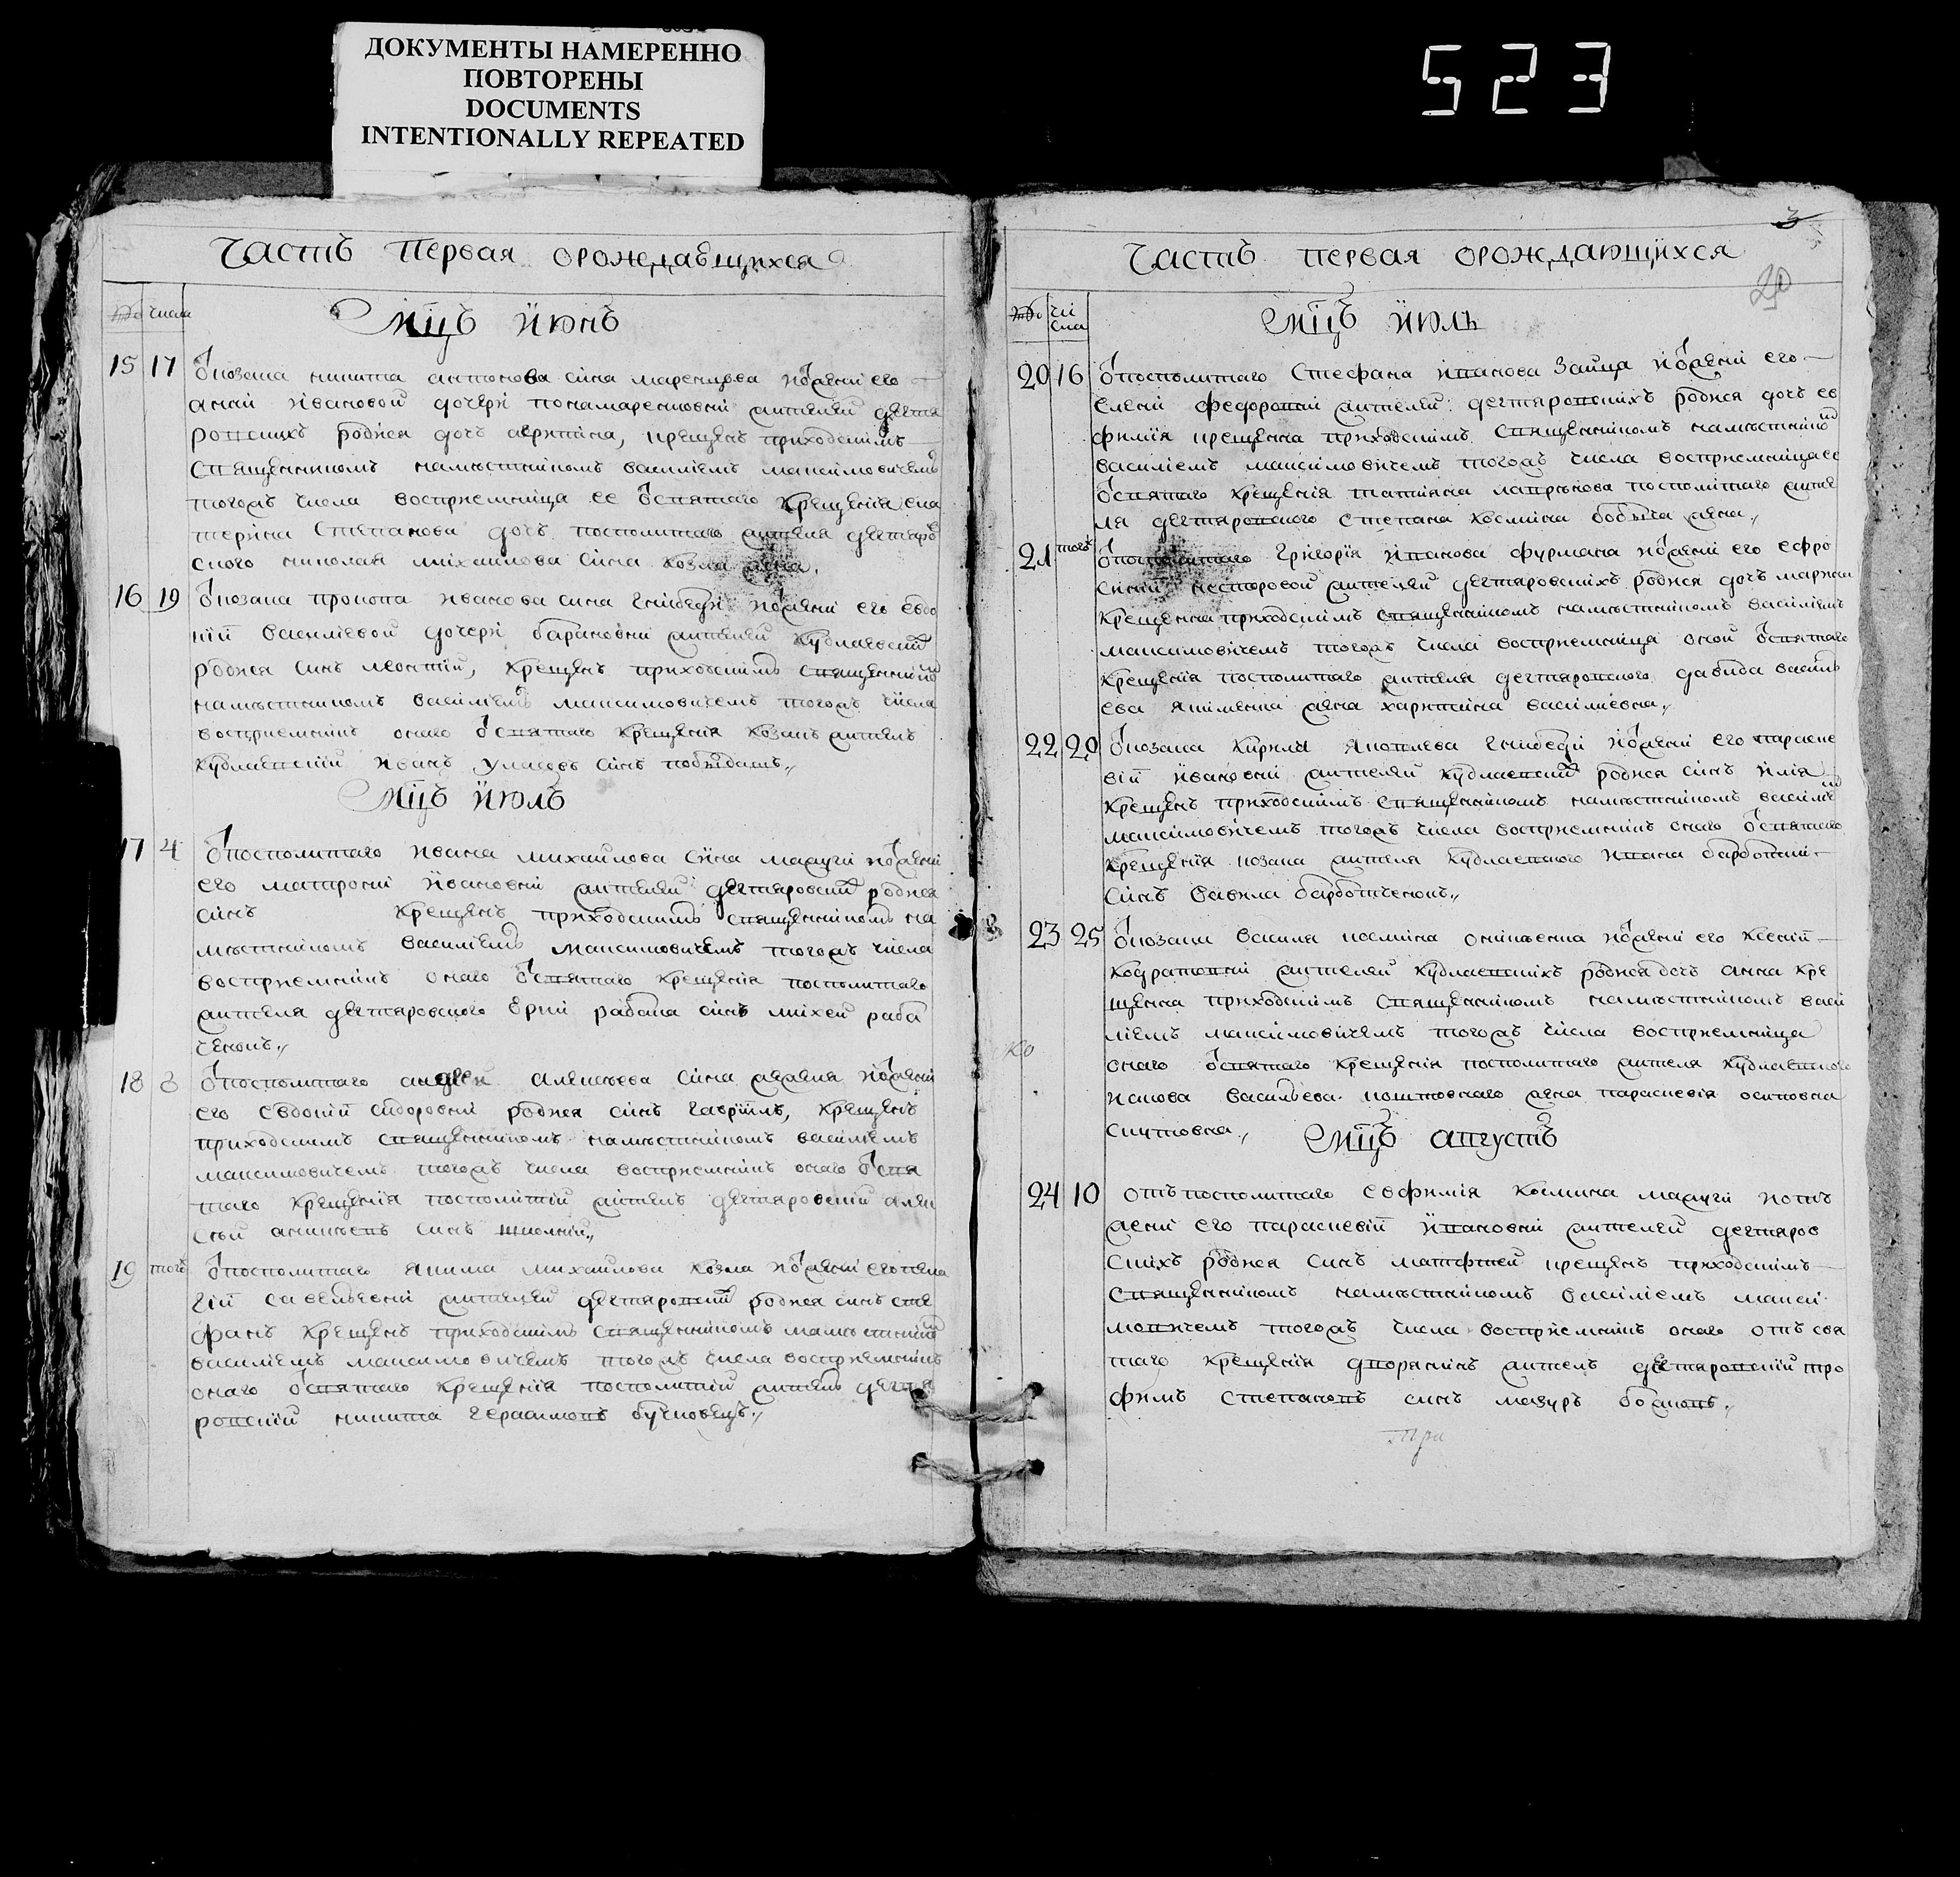 ДОКУМЕНТЫ НАМЕРЕННО
ПОВТОРЕНЫ
DOCUMENTS
INTENTIONALLY REPEATED
523
Часть Первая орождающихся
числа
Мцъ Июнь
15 17 Ѿ козака никита антонова сина маренцова и ѿ жени его
анни Ивановой дочери понамаренковни жителей дегтя
ровскихъ родися дочь, крещенъ приходскимъ
священникомъ наместникомъ василиемъ максимовичемъ
тогожъ числа восприемница ее ѿ святаго крещения ека
терина Степанова дочь посполитаго жителя дегтяров
ского николая михаилова сина козла жена,
16 19 Ѿ козака прокопа иванова сина и ѿ жени его евдо
кии василиевой дочери жителей кудлаевских
родися синъ леонтий, крещенъ приходскимъ священником
наместникомъ василиемъ максимовичемъ тогожъ числа
восприемникъ онаго ѿ святаго крещения козакъ житель
кудлаевский иванъ синъ
Мцъ Июль
17 4 Ѿ посполитаго ивана михаилова сина мажуги и ѿ жени
его матрони ивановни жителей дегтяровских родися
синъ крещенъ приходскимъ священникомъ на
местникомъ василиемъ максимовичемъ тогожъ числа
восприемникъ онаго ѿ святаго крещения посполитаго
жителя дегтяровского синъ михей раба
ченокъ,,
18 8 Ѿ посполитаго андрея алексеева сина и ѿ жени
его евдокии сидоровни родися синъ гавриилъ, крещенъ
приходскимъ священникомъ наместникомъ василиемъ
максимовичемъ тогожъ числа восприемникъ онаго ѿ свя
таго крещения посполитий житель дегтяровский алек
сей синъ
19 тогож Ѿ посполитаго якима михаилова козла и ѿ жени его пела
гии савелиевни жителей дегтяровских родися синъ сте
фанъ крещенъ приходскимъ священникомъ наместником
василиемъ максимовичемъ тогожъ числа восприемникъ
онаго ѿ святаго крещения посполитий житель дегтя
ровский никита герасимовъ
3
Часть первая орождающихся
20
чи
сла
Мцъ Июль
20 16 Ѿ посполитаго Стефана иванова зайца и ѿ жени его
елени федоровни жителей дегтяровскихъ родися дочь ев
фимия крещенна приходскимъ священникомъ наместником
василиемъ максимовичемъ тогожъ числа восприемница ее
ѿ святаго крещения татияна посполитаго жите
ля дегтяровского степана космина жена,,
21 тогож Ѿ посполитаго григория иванова фурмана и ѿ жени его ефро
синии несторовой жителей дегтяровскихъ родися дочь
крещенна приходскимъ священникомъ наместникомъ василиемъ
максимовичемъ тогожъ числа восприемница оной ѿ святаго
крещения посполитаго жителя дегтяровского давида васил
ева якименка жена харитина василиевна,,
22 20 Ѿ козака кирила яковлева и ѿ жени его параске
вии ивановни жителей кудлаевских родися синъ илия
крещенъ приходскимъ священникомъ наместникомъ василием
максимовичемъ тогожъ числа восприемникъ онаго ѿ святаго
крещения козака жителя кудлаевского ивана
синъ вавила,,
23 25 Ѿ козака василя космина и ѿ жени его ксении
кодратовни жителей кудлаевскихъ родися дочь анна кре
щенна приходскимъ священникомъ наместникомъ васи
лиемъ максимовичемъ тогожъ числа восприемница
онаго ѿ святаго крещения посполитаго жителя кудлаевского
якова василиева жена параскевия осиповна
Мцъ августъ
24 10 отъ посполитаго евфимия космина мажуги и отъ
жени его параскевии ивановни жителей дегтяров
скихъ родися синъ матфтей крещенъ приходскимъ
священникомъ наместникомъ василиемъ макси
мовичемъ тогожъ числа восприемникъ онаго отъ свя
таго крещения дворянинъ житель дегтяровский тро
фимъ степановъ синъ мазуръ